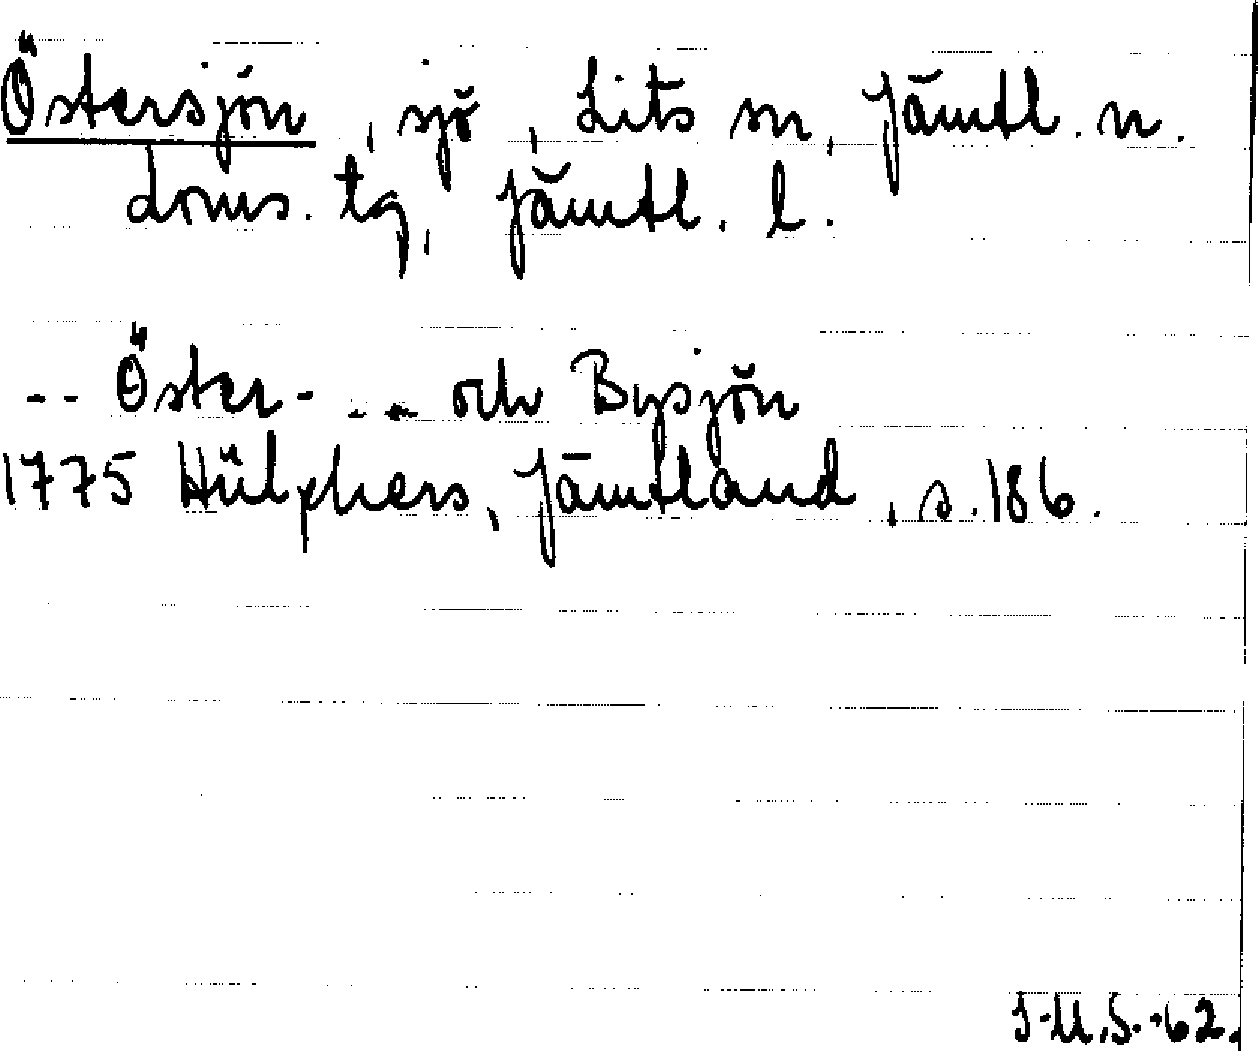 Östersjön, sjö, Lits sn, Jämtl. n.
doms. tg, Jämtl. l.
-- Öster- -- och Bysjön
1775 Hülphers, Jämtland, s. 186.
J-U.S.-62.